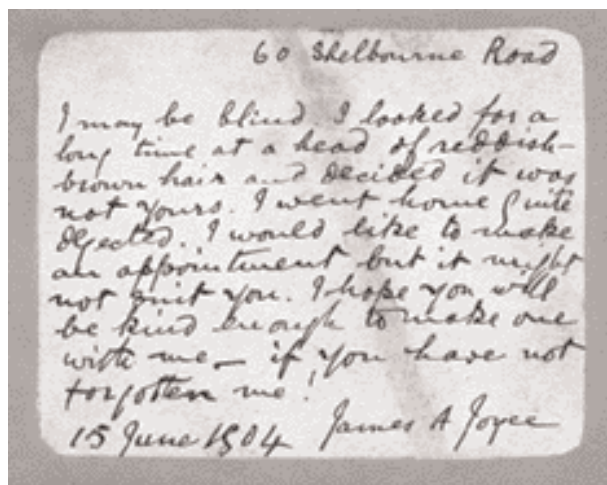 60 Shelbourne Road
I may be blind. I looked for a
long time at a head of reddish-
brown hair and decided it was
not yours. I went home quite
dejected. I would like to make
an appointment but it might
not suit you. I hope you will
be kind enough to make one
with me — if you have not
forgotten me!
James A Joyce
15 June 1904